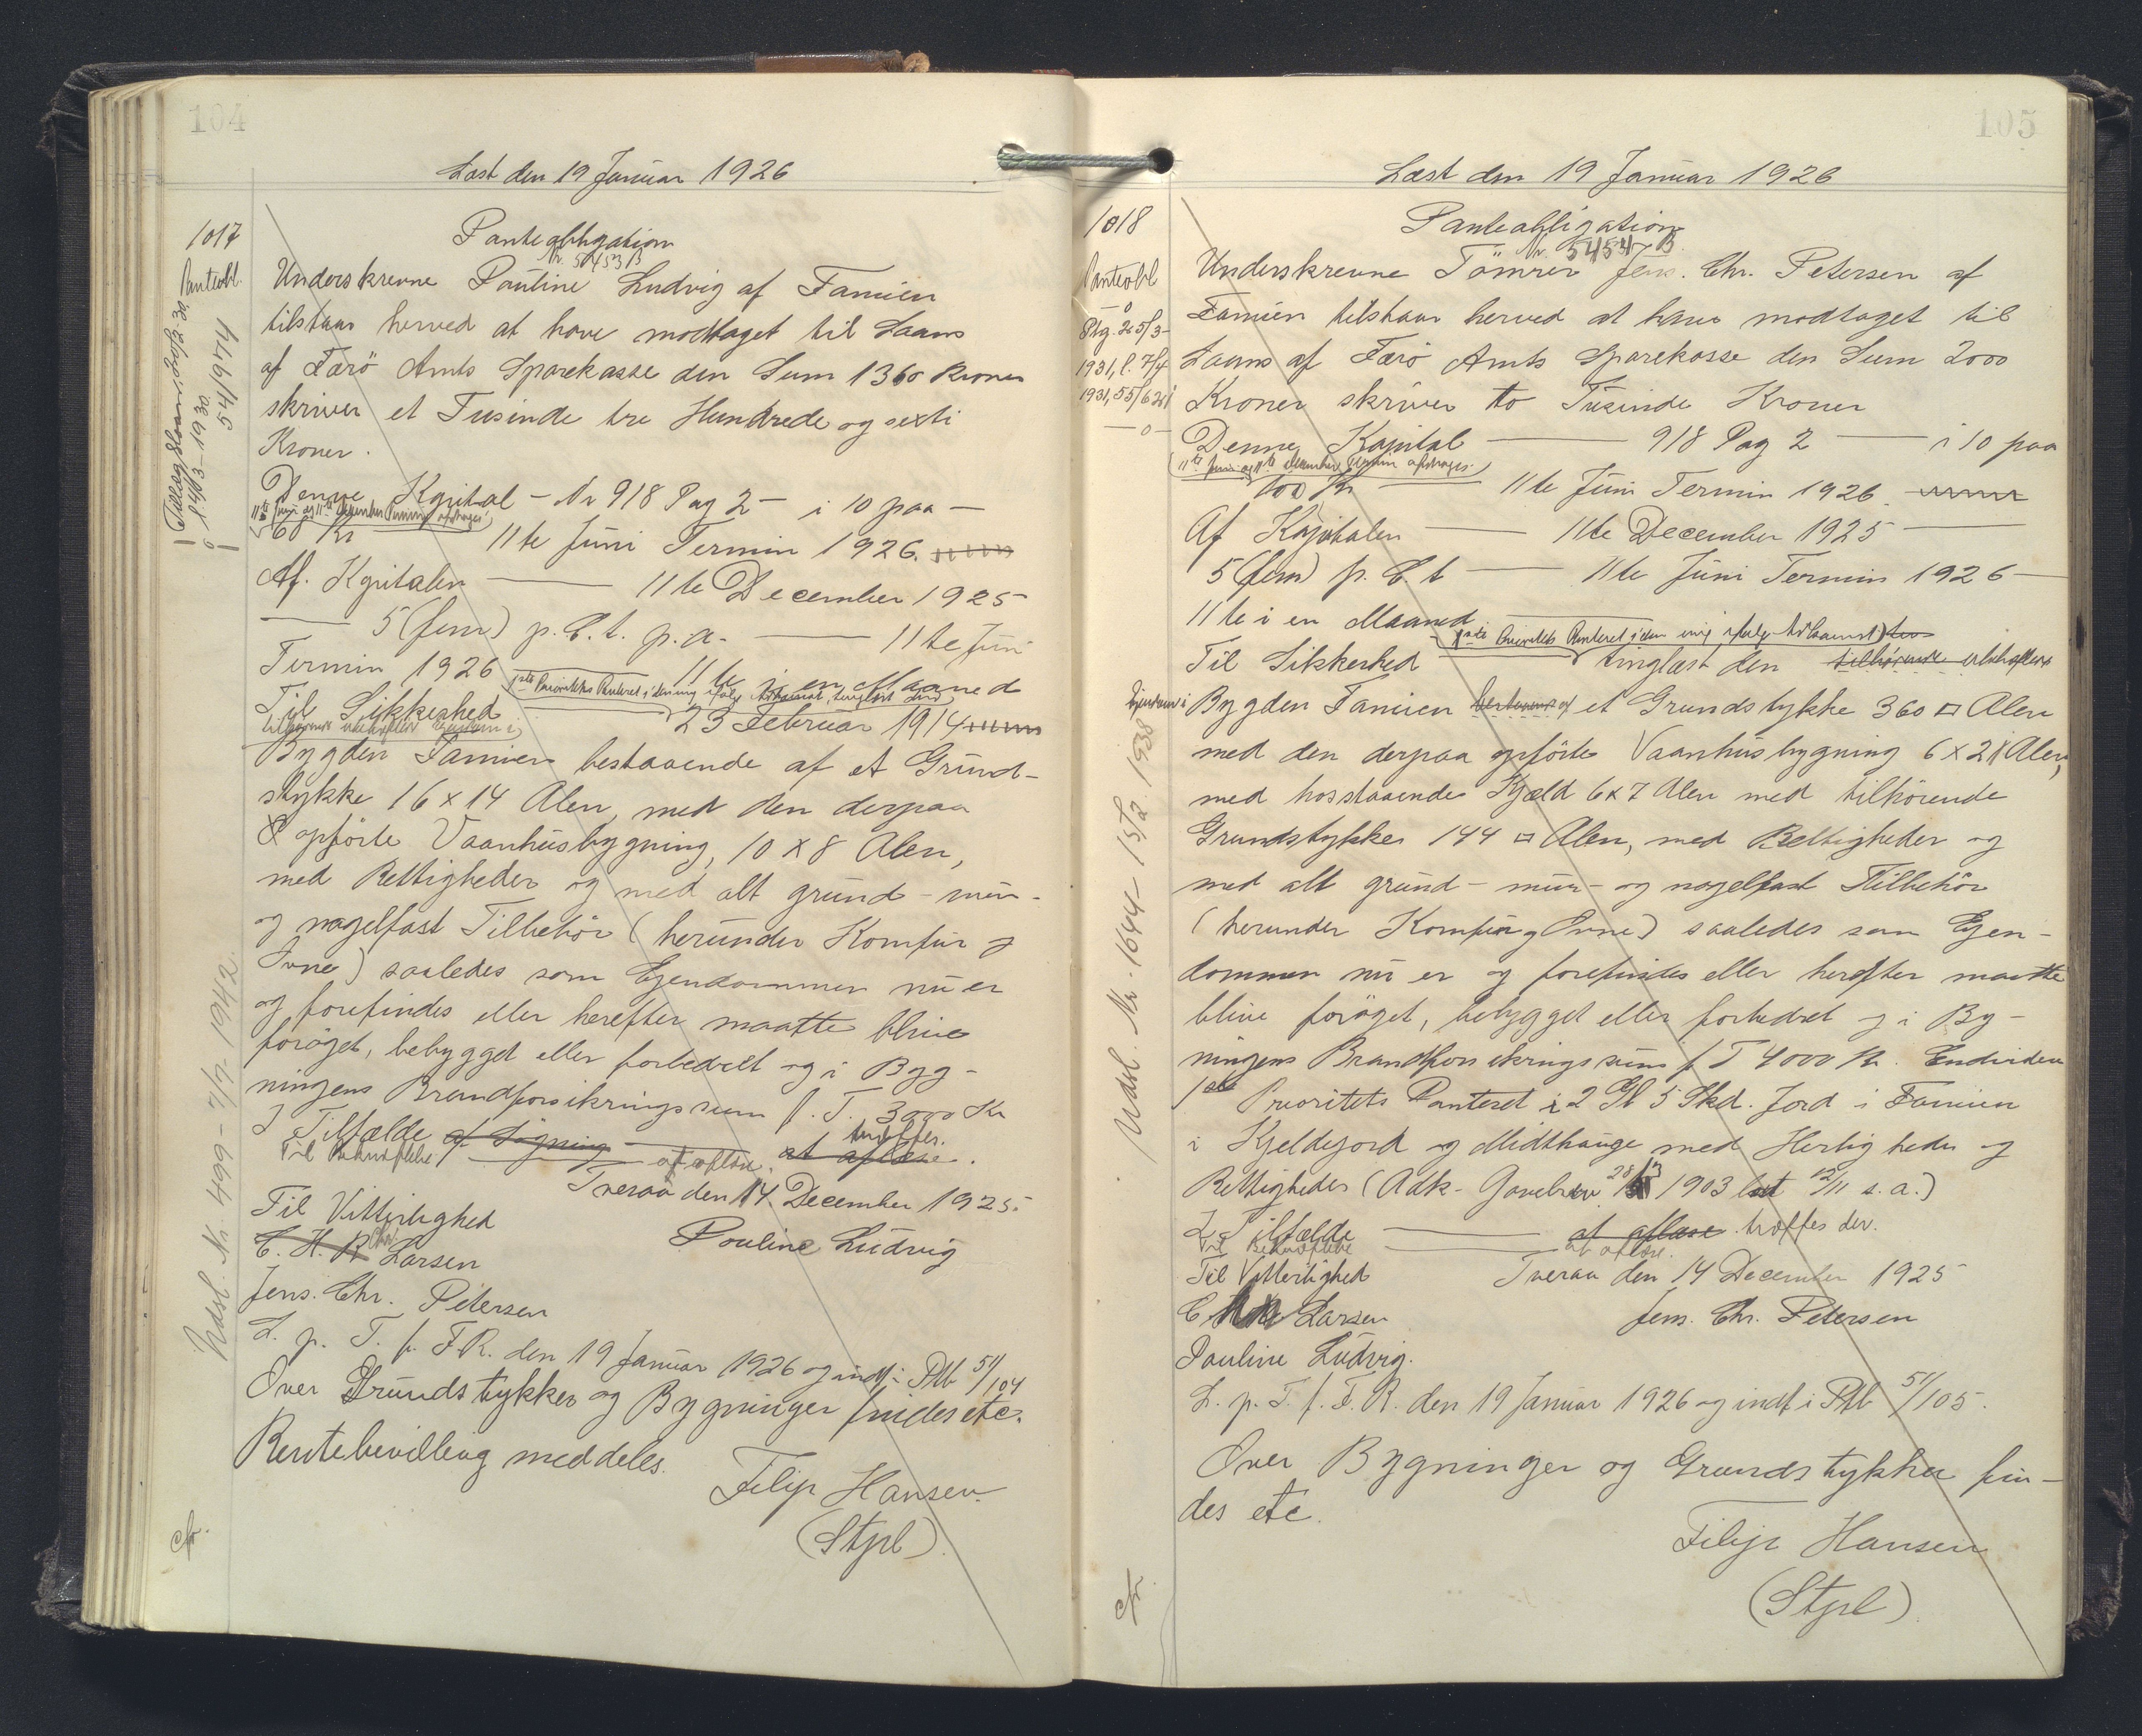 104
Læst den 19 Januar 1926
1017
Panteobl.
Tillæg Slaani 26/2 30
l. 14/3. 1930.
54/6474
Udsl. Nr. 499 - 7/7 1942.
cfr.
Panteobligation
Nr. 5453 B
Underskrevne Pauline Ludvig af Famien
tilstaar herved at have modtaget til Laans
af Færö Amts Sparekasse den Sum 1360 Kroner
skriver et Tusinde tre Hundrede og sexti
Kroner.
Denne Kapital - Nr 918 Pag 2 - i 10 paa -
(11te Juni og 11te December Termin afdrages)
60 Kr 11te Juni Termin 1926.
Af. Kapitalen 11te December 1925
5 (fem) p. C. t. p. a. 11te Juni
Termin 1926 11te i en Maaned
1ste Prioritets Panteret i den mig ifølge Adkomst, tinglæst den
Til Sikkerhed 23 Februar 1914
tilhørende ubehæftede Ejendom i
Bygden Famien bestaaende af et Grund-
stykke 16 x 14 Alen, med den derpaa
opförte Vaanhusbygning, 10 x 8 Alen,
med Rettigheder og med alt grund - mur -
og nagelfast Tilbehör (herunder Komfur og
Ovne) saaledes som Ejendommen nu er
og forefindes eller herefter maatte blive
foröget, bebygget eller forbedret og i Byg-
ningens Brandforsikringssum f. T. 3000 Kr
I Tilfælde af Sögning at aflæse. træffes.
Til Bekræftelse at aflæse.
Tveraa den 14 December 1925
Til Vitterlighed
C. H. R Chr. Larsen Pauline Ludvig
Jens. Chr. Petersen
L. p. T. f. F. R. den 19 Januar 1926 og indf i Ptb 51/104
Over Grundstykker og Bygninger findes etc.
Rentebevilling meddeles.
Filip Hansen.
(Stpl).
105
Læst den 19 Januar 1926
1018
Panteobl
Ptg. 25/3-
1931, l. 7/4
1931, 55/621
Ejendom i
Udsl. Nr. 1644 - 15/2. 1938
cfr.
Panteobligation
Nr. 5454 B.
Underskrevne Tömrer Jens. Chr. Petersen af
Famien tilstaar herved at have modtaget til
Laans af Færö Amts Sparekasse den Sum 2000
Kroner skriver to Tusinde Kroner
Denne Kapital 918 Pag 2 i 10 paa
(11te Juni og 11te December Termin afdrages)
100 Kr 11te Juni Termin 1926
Af Kapitalen 11te December 1925
5 (fem) p. C. t 11te Juni Termin 1926
11te i en Maaned
1ste Prioritets Panteret i den mig ifølge Adkomst
Til Sikkerhed tinglæst den tilhörende ubehæftede
Bygden Famien bestaaende af et Grundstykke 360 □ Alen
med den derpaa opförte Vaanhusbygning 6 x 21 Alen,
med hosstaaende Kjæld 6 x 7 Alen med tilhörende
Grundstykker 144 □ Alen, med Rettigheder og
med alt grund - mur - og nagelfast Tilbehör
(herunder Komfur og Ovne) saaledes som Ejen-
dommen nu er og forefindes eller herefter maatte
blive foröget, bebygget eller forbedret og i By-
ningens Brandforsikringssum f T 4000 Kr. Endvidere
1ste Prioritets Panteret i 2 Gl 5 Skd. Jord i Famien
i Kjeldejord og Midthauge med Herligheder og
Rettigheder (Adk- Gavebrev 1903 læst 12/11 s. a.)
I Tilfælde at aflæse træffes der.
Til Bekræftelse at aflæse.
Til Vitterlighed Tveraa den 14 December 1925
C Larsen Jens. Chr. Petersen
Pauline Ludvig.
L. p. T. f. F. R. den 19 Januar 1926 og indf i Ptb 51/105.
Over Bygninger og Grundstykker fin-
des etc.
Filip Hansen
(Stpl)